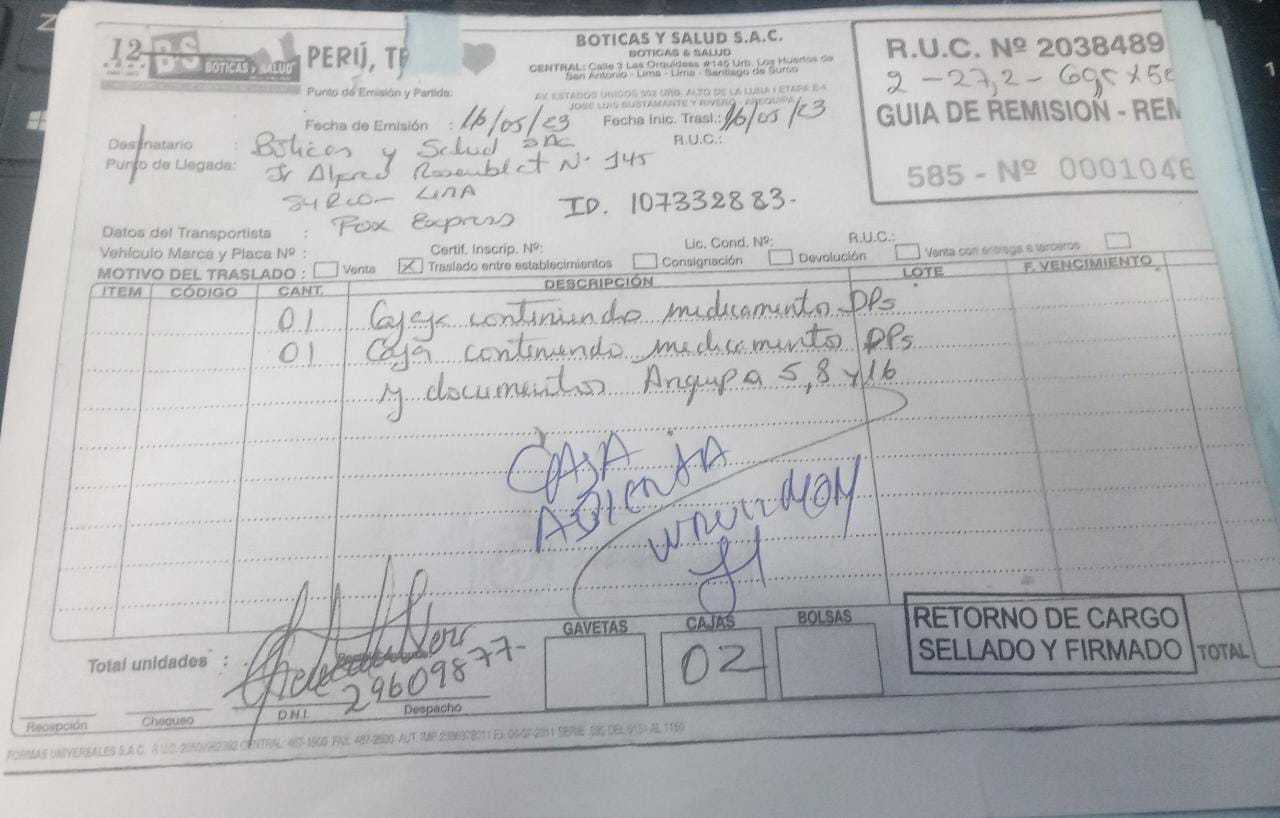 12
BS
BOTICAS Y SALUD
PERÚ, TE
BOTICAS Y SALUD S.A.C.
BOTICAS & SALUD
CENTRAL: Calle 3 Las Orquídeas #145 Urb. Los Huertos de
San Antonio - Lima - Lima - Santiago de Surco
AV. ESTADOS UNIDOS 502 URB. ALTO DE LA LUNA I ETAPA E-4
JOSE LUIS BUSTAMANTE Y RIVERO - AREQUIPA
R.U.C. Nº 2038489
2 - 27,2 - 69 x 50
GUIA DE REMISIÓN - REM
585 - Nº 0001046
Punto de Emisión y Partida:
Fecha de Emisión : 16/05/23 Fecha Inic. Trasl.: 16/05/23
Destinatario : Boticas y Salud SAC R.U.C.:
Punto de Llegada: Jr Alfred Rosemblat Nº 145
Surco - Lima
ID. 107332883-
Datos del Transportista : Fox Express
Vehículo Marca y Placa Nº : Certif. Inscrip. Nº: Lic. Cond. Nº: R.U.C.:
MOTIVO DEL TRASLADO : Venta X Traslado entre establecimientos Consignación Devolución Venta con entrega a terceros
ITEM CÓDIGO CANT. DESCRIPCIÓN LOTE F. VENCIMIENTO
01 Cajas continiendo medicamento DPs
01 Caja continiendo medicamento DPs
y documentos Arequipa 5,8 y 16
CAJA
ABIENTA
GAVETAS CAJAS BOLSAS
02
RETORNO DE CARGO
SELLADO Y FIRMADO
TOTAL
Total unidades :
29609877-
Recepción Chequeo D.N.I. Despacho
FORMAS UNIVERSALES S.A.C. CENTRAL: 467-1600 FAX: 467-2600 SERIE 585 DEL 0151 AL 1150